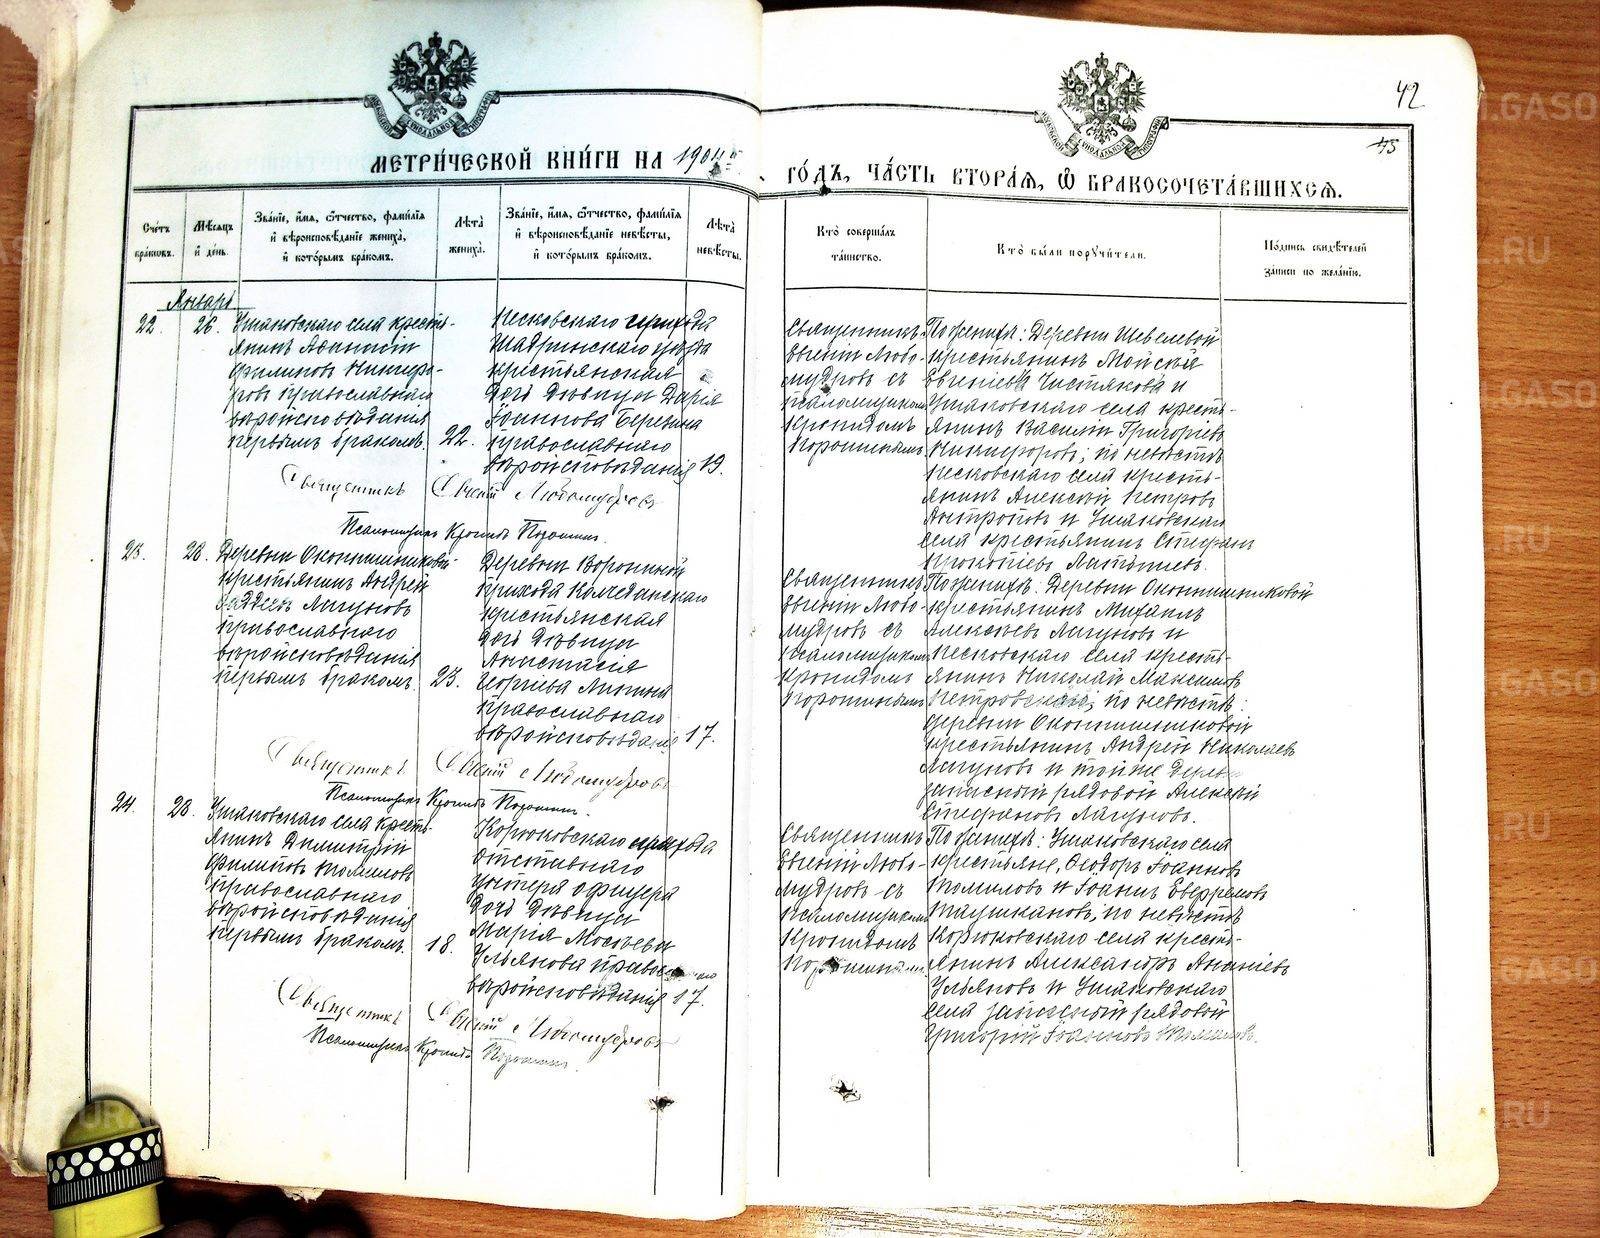 42
45
МЕТРИЧЕСКОЙ КНИГИ НА 1904й
ГОДЪ, ЧАСТЬ ВТОРАЯ, Ѡ БРАКОСОЧЕТАВШИХСЯ.
Счетъ браковъ.
Мѣсяцъ и день.
Званіе, имя, отчество, фамилія
и вѣроисповѣданіе жениха,
и которымъ бракомъ.
Лѣта
жениха.
Званіе, имя, отчество, фамилія
и вѣроисповѣданіе невѣсты,
и которымъ бракомъ.
Лѣта
невѣсты.
Кто совершалъ
таинство.
Кто были поручители.
Подпись свидѣтелей
записи по желанію.
Январь
22.
26.
Ушаковскаго села кресть-
янинъ Аѳанасій
Филиповъ Никифо-
ровъ православнаго
вѣроисповѣданія
первымъ бракомъ.
22.
Песковскаго прихода
Шадринскаго уѣзда
крестьянская
дочь дѣвица Дарія
Іоаннова Березина
православнаго
вѣроисповѣданія
19.
Священникъ
Евгеній Любо-
мудровъ съ
псаломщикомъ
Кронидомъ
Порошинымъ
По женихѣ: Деревни Шевелевой
крестьянинъ Моисей
Евгеніевъ Чистяковъ и
Ушаковскаго села кресть-
янинъ Василій Григоріевъ
Никифоровъ; по невѣстѣ
Песковскаго села кресть-
янинъ Алексій Петровъ
Антроповъ и Ушаковскаго
села крестьянинъ Стефанъ
Прокопіевъ
Священникъ Евгеній Любомудровъ
Псаломщикъ Кронидъ Порошинъ.
23.
28.
Деревни Окопишниковой
крестьянинъ Андрей
Лагуновъ
православнаго
вѣроисповѣданія
первымъ бракомъ.
23.
Деревни Ворониной
прихода Колчеданскаго
крестьянская
дочь дѣвица
Анастасія
Георгіева
православнаго
вѣроисповѣданія
17.
Священникъ
Евгеній Любо-
мудровъ съ
псаломщикомъ
Кронидомъ
Порошинымъ
По женихѣ: Деревни Окопишниковой
крестьянинъ Михаилъ
Алексѣевъ Лагуновъ и
Песковскаго села кресть-
янинъ Николай Максимовъ
по невѣстѣ:
деревни Окопишниковой
крестьянинъ Андрей Николаевъ
Лагуновъ и той же дерев
запасный рядовой Алексій
Стефановъ Лагуновъ.
Священникъ Евгеній Любомудровъ
Псаломщикъ Кронидъ Порошинъ.
24.
28.
Ушаковскаго села кресть-
янинъ Димитрій
Филиповъ Томиловъ
православнаго
вѣроисповѣданія
первымъ бракомъ.
18.
Корюковскаго прихода
отставнаго
унтеръ офицера
дочь дѣвица
Марія Мосѣева
Ульянова православнаго
вѣроисповѣданія
17.
Священникъ
Евгеній Любо-
мудровъ съ
псаломщикомъ
Кронидомъ
Порошинымъ
По женихѣ: Ушаковскаго села
крестьяне, Ѳеодоръ Іоанновъ
Томиловъ и Іоаннъ Евфремовъ
по невѣстѣ
Корюковскаго села кресть-
янинъ Александръ Ананіевъ
Ульяновъ и Ушаковскаго
села запасный рядовой
Григорій Іоанновъ Томиловъ.
Священникъ Евгеній Любомудровъ
Псаломщикъ Кронидъ Порошинъ.